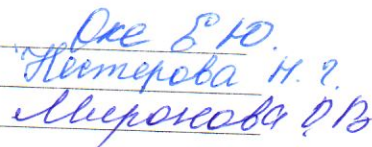 Оке Е Ю.
Нестерова Н. Г.
Миронова О.В